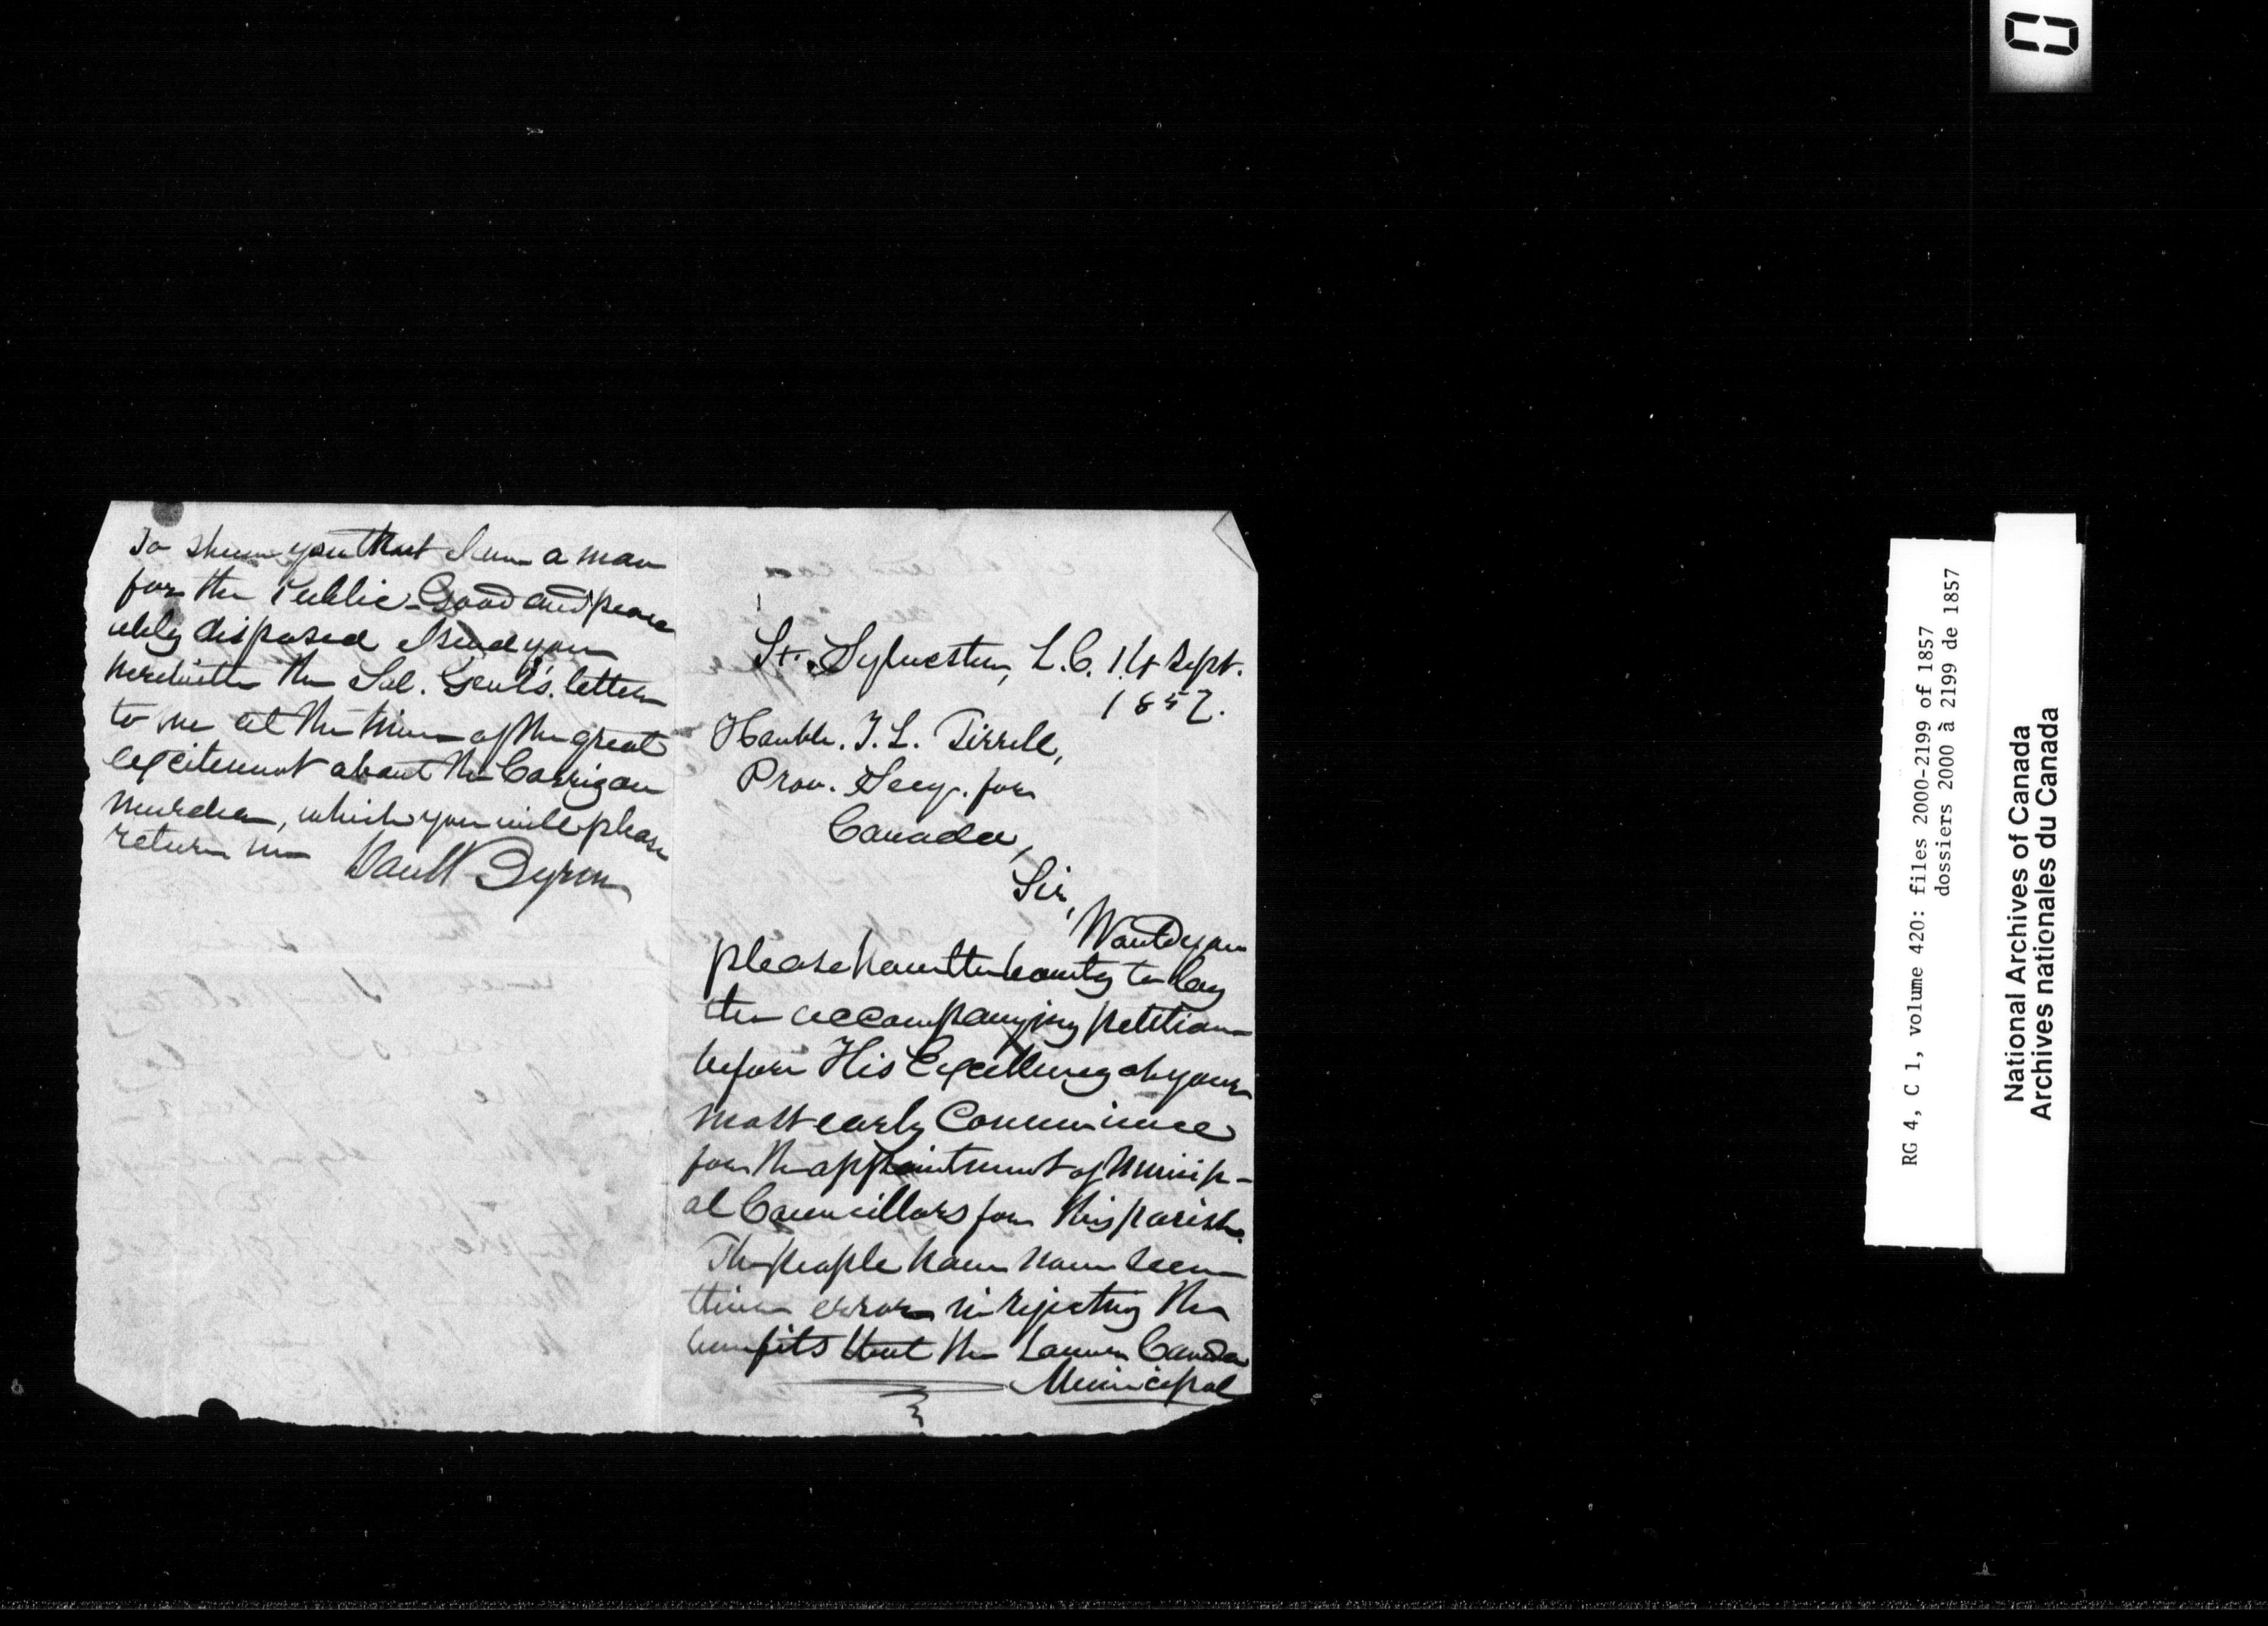 To shew you that I am a man
for the Public Good and peace
ably disposed I send you
herewith the Sol. Genl's. letter
to me at the time of the great
excitement about the Corrigan
murder, which you will please
return me
Danl Byron
St. Sylvester, L.C. 14 Sept.
1857.
Honble. T. L. Tirrell,
Prov. Secy. for
Canada,
Sir,
Would you
please have the bounty to lay
the accompanying petition
before His Excellency at your
most early Convenience
for the appointment of Municip-
al Councillors for this parish.
The people have now seen
their error in rejecting the
benefits that the Lower Canada
Municipal
RG 4, C 1, volume 420: files 2000-2199 of 1857
dossiers 2000 à 2199 de 1857
National Archives of Canada
Archives nationales du Canada
0